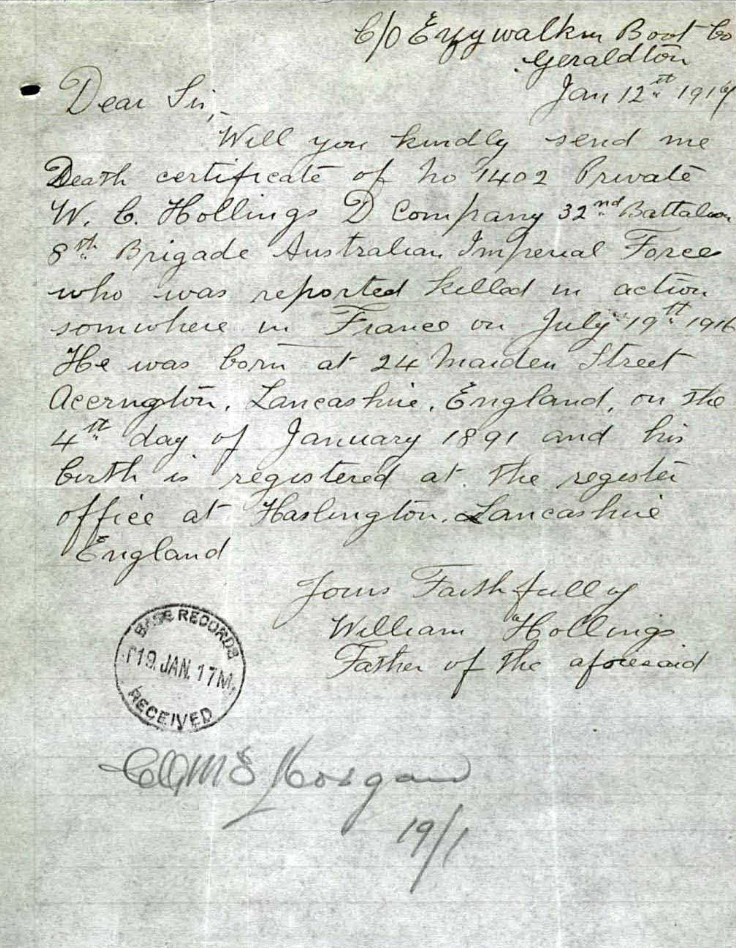 C/O Ezywalkin Boot Co
Geraldton
Jan 12th 1917
Dear Sir,
Will you kindly send me
Death certificate of No 1402 Private
W. C. Hollings D Company 32nd Battalion
8th Brigade Australian Imperial Force
who was reported killed in action
somwhere in France on July 19th 1916
He was born at 24 Maiden Street
Accrngton, Lancashire, England, on the
4th day of January 1891 and his
birth is registered at the register
office at Haslington, Lancashire
England
Yours Faithfully
William Hollings
Father of the aforesaid
BASE RECORDS
19. JAN. 17
RECEIVED
Morgan
19/1